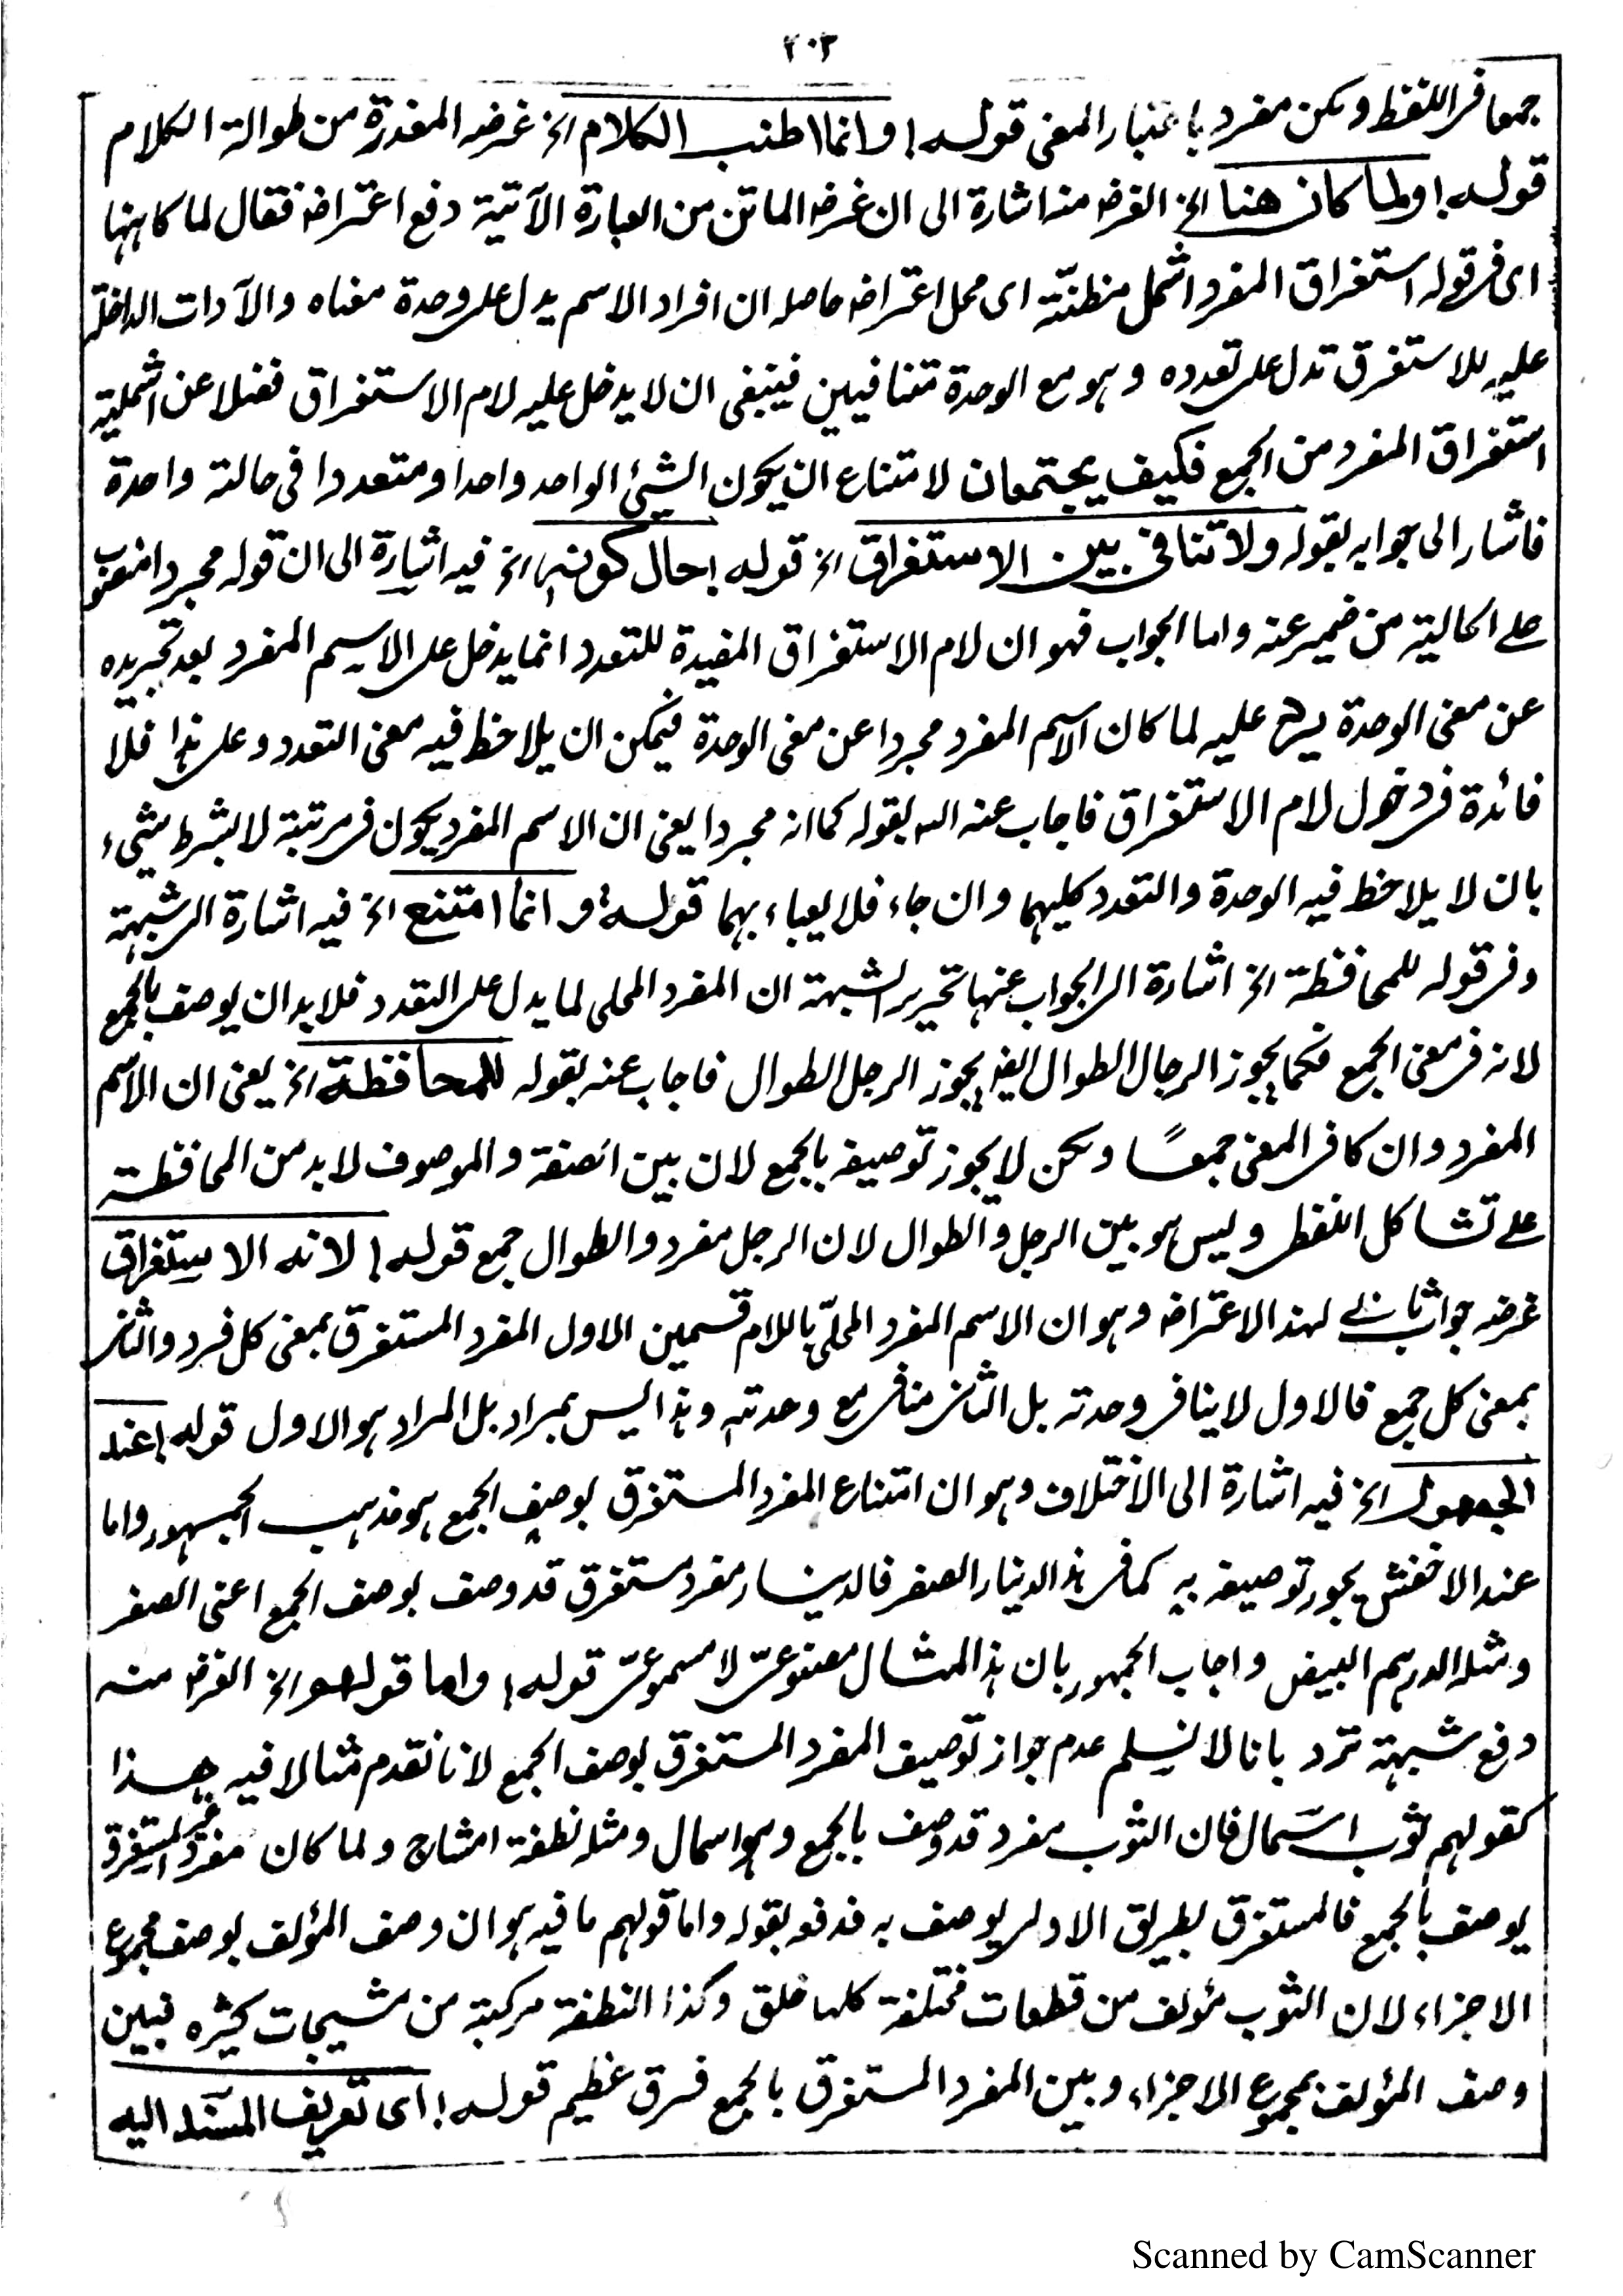 ٢٠٣
جمعا فى اللفظ ولكن مفرد باعتبار المعنى قوله؛ وانما اطنب الكلام الخ غرضه المعذرة من طوالة الكلام
قوله؛ ولما كان هنا الخ الغرض منه اشارة الى ان غرض الماتن من العبارة الآتية دفع اعتراض فقال لما كا ههنا
اى فى قوله استغراق المفرد اشمل منظنّة اى محل اعتراض حاصله ان افراد الاسم يدل على وحدة معناه والآدات الداخلة
عليه للاستغرق تدل على تعدده وهو مع الوحدة متنافيين فينبغى ان لا يدخل عليه لام الاستغراق فضلا عن اشملية
استغراق المفرد من الجمع فكيف يجتمعان لامتناع ان يكون الشيئ الواحد واحدا ومتعددا فى حالة واحدة
فاشار الى جوابه بقوله ولا تنافى بين الاستغراق الخ قوله؛ حال كونه الخ فيه اشارة الى ان قوله مجردا منصوب
على الحالية من ضمير عنه واما الجواب فهو ان لام الاستغراق المفيدة للتعدد انما يدخل على الاسم المفرد بعد تجريده
عن معنى الوحدة يرد عليه لما كان الاسم المفرد مجردا عن معنى الوحدة فيمكن ان يلاحظ فيه معنى التعدد وعلى هذا فلا
فائدة فى دخول لام الاستغراق فاجاب عنه الله بقوله كما انه مجردا يعنى ان الاسم المفرد يكون فى مرتبة لا بشرط شيء
بان لا يلاحظ فيه الوحدة والتعدد كليهما وان جاء فلا يعباء بهما قوله؛ وانما امتنع الخ فيه اشارة الى شبهة
وفى قوله للمحافظة الخ اشارة الى الجواب عنها تحرير الشبهة ان المفرد المحلى لما يدل على التعدد فلابد ان يوصف بالجمع
لانه فى معنى الجمع فكما يجوز الرجال الطوال ايضا يجوز الرجل الطوال فاجاب عنه بقوله للمحافظة الخ يعنى ان الاسم
المفرد وان كا فى المعنى جمعًا ولكن لا يجوز توصيفه بالجمع لان بين الصفة والموصوف لابد من المحافظة
على تشاكل اللفظ وليس هو بين الرجل والطوال لان الرجل مفرد والطوال جمع قوله؛ لانه الاستغراق
غرضه جواب ثانى لهذ الاعتراض وهو ان الاسم المفرد المحلّى باللام قسمين الاول المفرد المستغرق بمعنى كل فرد والثانى
بمعنى كل جمع فالاول لا ينافى وحدته بل الثانى منافى مع وحدته وهذا ليس بمراد بل المراد هو الاول قوله؛ عند
الجمهور الخ فيه اشارة الى الأختلاف وهو ان امتناع المفرد المستغرق بوصف الجمع هو مذهب الجمهور واما
عند الاخفش يجوز توصيفه به كما فى هذ الدينار الصفر فالدينار مفرد مستغرق قد وصف بوصف الجمع اعنى الصفر
ومثله الدرهم البيض واجاب الجمهور بان هذ المثال مصنوعىّ لا مسموعىّ قوله؛ واما قولهم الخ الغرض منه
دفع شبهة ترد بانا لا نسلم عدم جواز توصيف المفرد المستغرق بوصف الجمع لانا نقدم مثالا فيه هذا
كقولهم ثوب اسمال فان الثوب مفرد قد وصف بالجمع وهو اسمال ومثله نطفة امشاج ولما كان مفرد غير المستغرق
يوصف بالجمع فالمستغرق بطريق الاولى يوصف به فدفع بقوله واما قولهم ما فيه هو ان وصف المؤلف بوصف مجموع
الاجزاء لان الثوب مؤلف من قطعات مختلفة كلها خلق وكذا النطفة مركبة من مشيجات كثيره فبين
وصف المؤلف بمجموع الاجزاء وبين المفرد المستغرق بالجمع فرق عظيم قوله؛ اى تعريف المسند اليه
Scanned by CamScanner